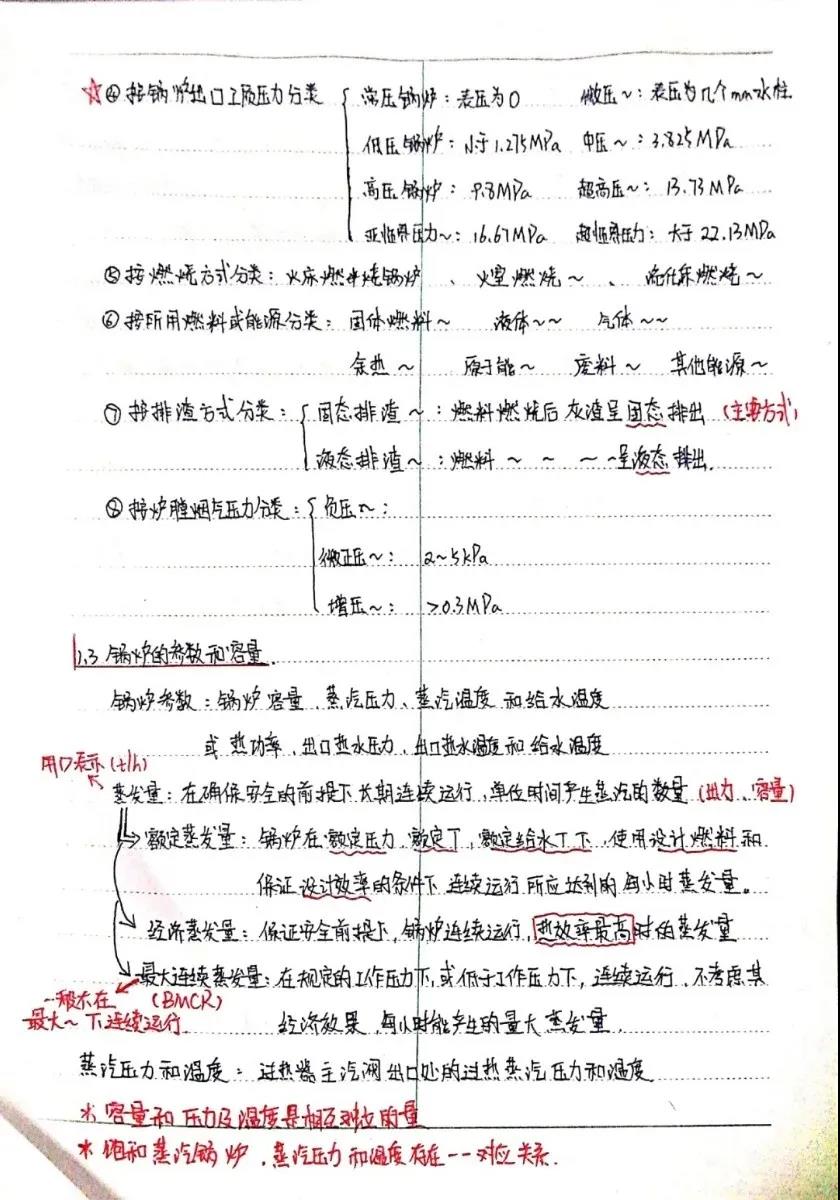 ☆④按锅炉出口工质压力分类 { 常压锅炉：表压为0 微压～：表压为几个mm水柱.
低压锅炉：小于1.275MPa 中压～：3.825MPa
高压锅炉：9.8MPa 超高压～：13.73MPa
亚临界压力～：16.67MPa 超临界压力：大于22.13MPa
⑤按燃烧方式分类：火床燃烧锅炉、火室燃烧～、流化床燃烧～
⑥按所用燃料或能源分类：固体燃料～ 液体～～ 气体～～
余热～ 原子能～ 废料～ 其他能源～
⑦按排渣方式分类：{ 固态排渣～：燃料燃烧后灰渣呈固态排出（主要方式）
液态排渣～：燃料～ ～ ～ ～呈液态排出.
⑧按炉膛烟气压力分类：{ 负压～：
微正压～： 2~5kPa
增压～： >0.3MPa
1.3 锅炉的参数和容量.
锅炉参数：锅炉容量、蒸汽压力、蒸汽温度和给水温度
或 热功率、出口热水压力、出口热水温度和给水温度
用D表示(t/h)
蒸发量：在确保安全的前提下长期连续运行,单位时间产生蒸汽的数量（出力、容量）
额定蒸发量：锅炉在额定压力、额定T、额定给水T下,使用设计燃料和
保证设计效率的条件下连续运行所应达到的每小时蒸发量。
经济蒸发量：保证安全前提下,锅炉连续运行,热效率最高时的蒸发量
最大连续蒸发量：在规定的工作压力下,或低于工作压力下,连续运行、不考虑其
一般不在 (BMCR)
最大～下连续运行. 经济效果,每小时能产生的最大蒸发量.
蒸汽压力和温度：过热器主汽阀出口处的过热蒸汽压力和温度
*容量和压力及温度是相互对应的量
*饱和蒸汽锅炉,蒸汽压力和温度存在一一对应关系.